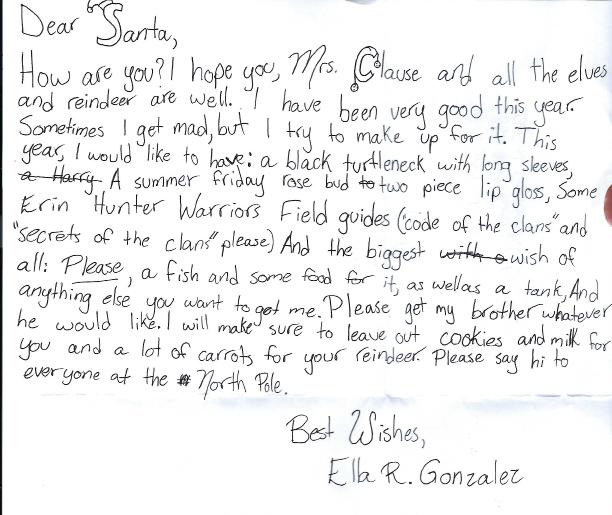 Dear Santa,
How are you? I hope you, Mrs. Clause and all the elves
and reindeer are well. I have been very good this year.
Sometimes I get mad, but I try to make up for it. This
year, I would like to have: a black turtleneck with long sleeves,
a Harry A summer friday rose bud to two piece lip gloss, Some
Erin Hunter Warriors Field guides ("code of the clans" and
"secrets of the clans" please) And the biggest with a wish of
all: Please, a fish and some food for it, as well as a tank, And
anything else you want to get me. Please get my brother whatever
he would like. I will make sure to leave out cookies and milk for
you and a lot of carrots for your reindeer. Please say hi to
everyone at the North Pole.
Best Wishes,
Ella R. Gonzalez